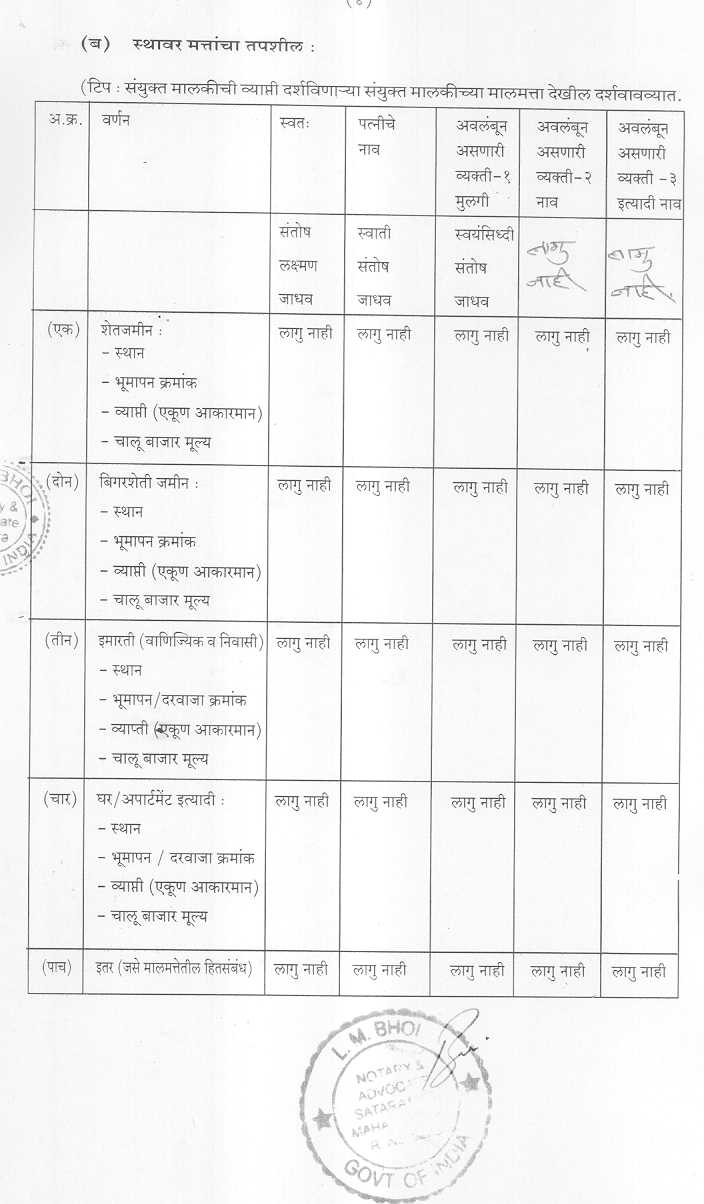 (ब) स्थावर मत्तांचा तपशील :
(टिप : संयुक्त मालकीची व्याप्ती दर्शविणाऱ्या संयुक्त मालकीच्या मालमत्ता देखील दर्शवावव्यात.
अ.क्र. वर्णन स्वतः पत्नीचे नाव अवलंबून असणारी व्यक्ती-१ मुलगी अवलंबून असणारी व्यक्ती-२ नाव अवलंबून असणारी व्यक्ती -३ इत्यादी नाव
संतोष लक्ष्मण जाधव स्वाती संतोष जाधव स्वयंसिध्दी संतोष जाधव लागु नाही लागु नाही.
(एक) शेतजमीन : लागु नाही लागु नाही लागु नाही लागु नाही लागु नाही
- स्थान
- भूमापन क्रमांक
- व्याप्ती (एकूण आकारमान)
- चालू बाजार मूल्य
(दोन) बिगरशेती जमीन : लागु नाही लागु नाही लागु नाही लागु नाही लागु नाही
- स्थान
- भूमापन क्रमांक
- व्याप्ती (एकूण आकारमान)
- चालू बाजार मूल्य
(तीन) इमारती (वाणिज्यिक व निवासी) लागु नाही लागु नाही लागु नाही लागु नाही लागु नाही
- स्थान
- भूमापन/दरवाजा क्रमांक
- व्याप्ती (एकूण आकारमान)
- चालू बाजार मूल्य
(चार) घर/अपार्टमेंट इत्यादी : लागु नाही लागु नाही लागु नाही लागु नाही लागु नाही
- स्थान
- भूमापन / दरवाजा क्रमांक
- व्याप्ती (एकूण आकारमान)
- चालू बाजार मूल्य
(पाच) इतर (जसे मालमत्तेतील हितसंबंध) लागु नाही लागु नाही लागु नाही लागु नाही लागु नाही
BHOI
INDIA
L. M. BHOI
NOTARY &
SATARA
MAHA
GOVT OF INDIA